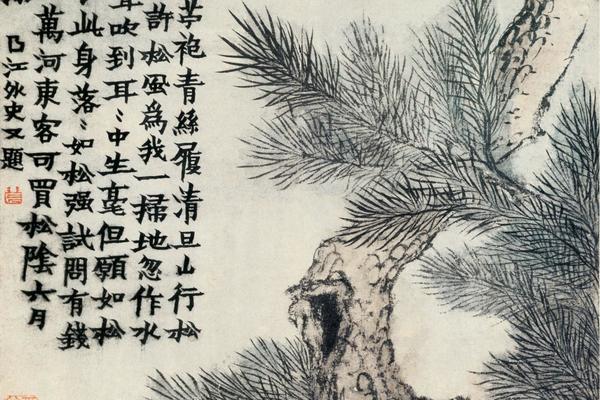 袍青絲履清旦山行松
許松風為我一掃地忽作水
吹到耳〻中生毫但願如松
此身落〻如松强試問有錢
萬河東客可買松陰六月
江外史又題